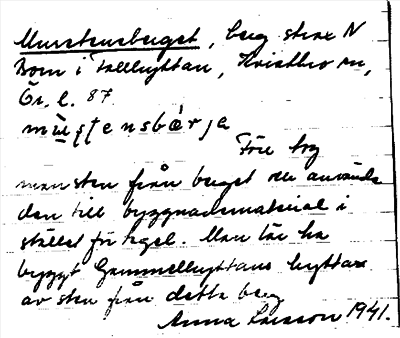 Murstensberget, berg strax N
Born i Tallhyttan, Hjulsbro sn,
Ör. l. 87
Förr tog
man sten från berget och använde
den till byggnadsmaterial i
stället för tegel. Man lär ha
byggt Gammelhyttans hyttor
av sten från detta berg
Anna Larsson 1941.